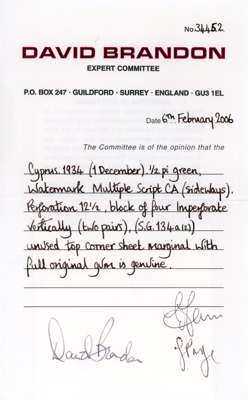 No. 34452
DAVID BRANDON
EXPERT COMMITTEE
P.O. BOX 247 · GUILDFORD · SURREY · ENGLAND · GU3 1EL
Date 6th February 2006
The Committee is of the opinion that the
Cyprus. 1934 (1 December). ½ pi green,
Watermark Multiple Script CA (sideways).
Perforation 12½, block of four Imperforate
Vertically (two pairs), (S.G. 134a(2))
unused top corner sheet marginal with
full original gum is genuine.
David Brandon